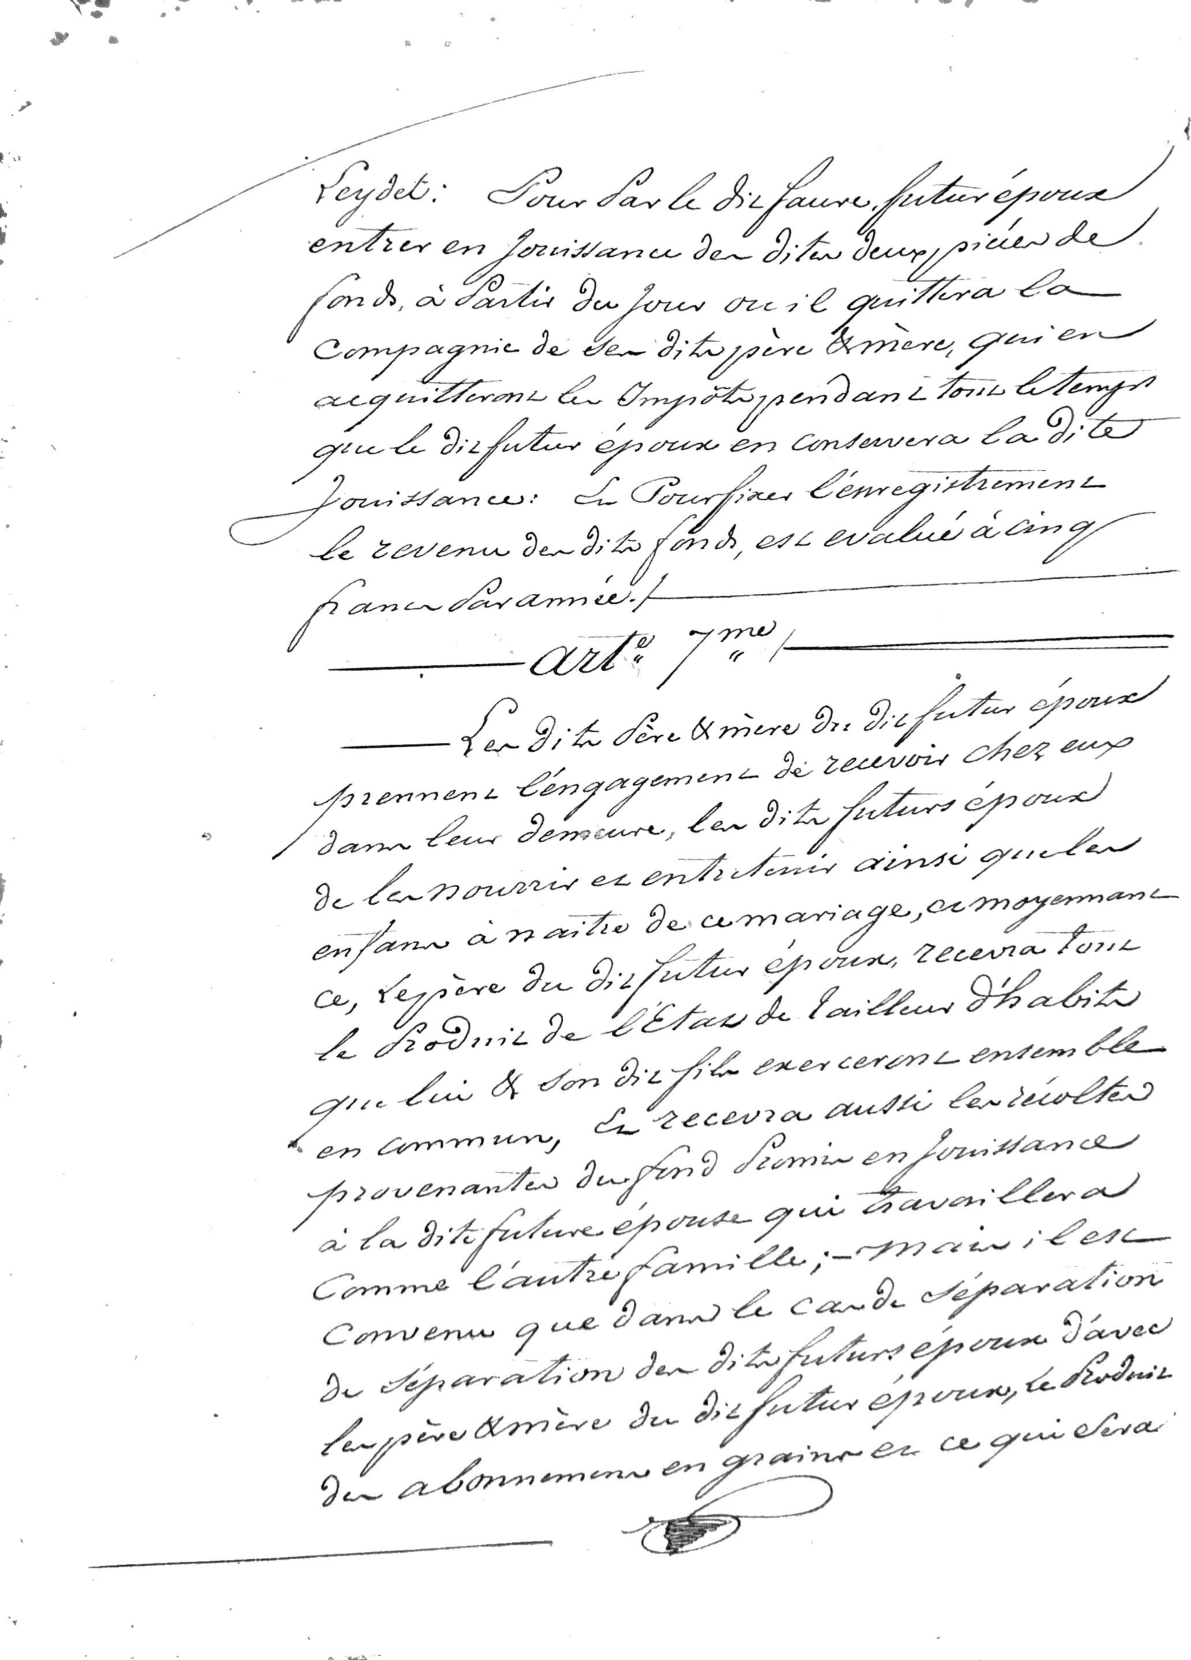 Leydet : Pour Par le dit faure, futur époux
entrer en Jouissance des dites deux pièces de
fonds, à Partir du Jour ou il quittera la
Compagnie de ses dits père & mère, qui en
acquitteront les Impôts pendant tout le temps
que le dit futur époux en conservera la dite
Jouissance : Et Pour fixer l'enregistrement
le revenu des dits fonds, est evalué à cinq
francs Par année./
arte. 7me /
Les dits Père & mère du dit futur époux
prennent l'éngagement de recevoir chez eux
dans leur demeure, les dits futurs époux
de les nourrir et entretenir ainsi que les
enfans à naître de ce mariage, et moyennant
ce, Le père du dit futur époux, recevra tout
le Produit de l'État de tailleur d'habits
que lui & son dit fils exerceront ensemble
en commun, Et recevra aussi les récoltes
provenantes du fond Promis en Jouissance
à la dite future épouse qui travaillera
Comme l'autre famille ; - Mais il est
Convenu que dans le cas de séparation
de séparation des dits futurs époux d'avec
les père & mère du dit futur époux, Le Produit
des abonnemens en grains et ce qui sera